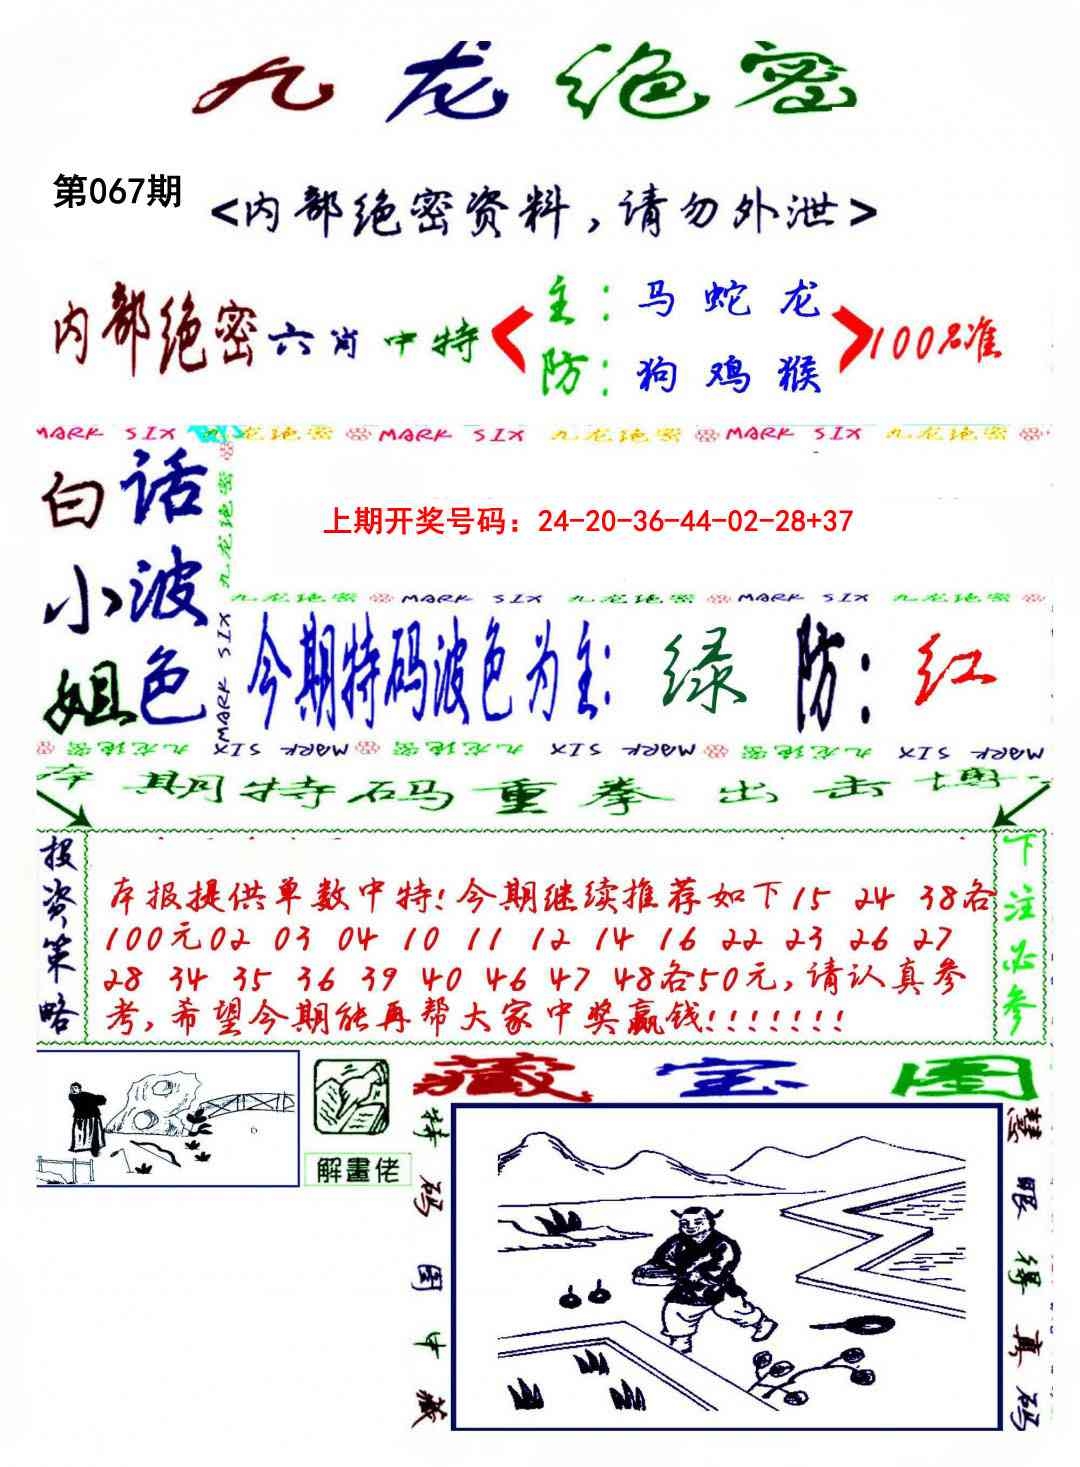 九龙绝密
第067期
<内部绝密资料，请勿外泄>
内部绝密六肖中特
主：马 蛇 龙
防：狗 鸡 猴
100%准
MARK SIX 九龙绝密 MARK SIX 九龙绝密 MARK SIX 九龙绝密
白小姐
话波色
九龙绝密 MARK SIX
上期开奖号码：24-20-36-44-02-28+37
九龙绝密 MARK SIX 九龙绝密 MARK SIX 九龙绝密
今期特码波色为主：绿 防：红
九龙绝密 MARK SIX 九龙绝密 MARK SIX 九龙绝密 MARK SIX
本期特码重拳出击博
投资策略
本报提供单数中特!今期继续推荐如下15 24 38各
100元02 03 04 10 11 12 14 16 22 23 26 27
28 34 35 36 39 40 46 47 48各50元,请认真参
考,希望今期能再帮大家中奖赢钱!!!!!!!
下注必参
解畫佬
藏宝图
特码图中藏
慧眼得真码